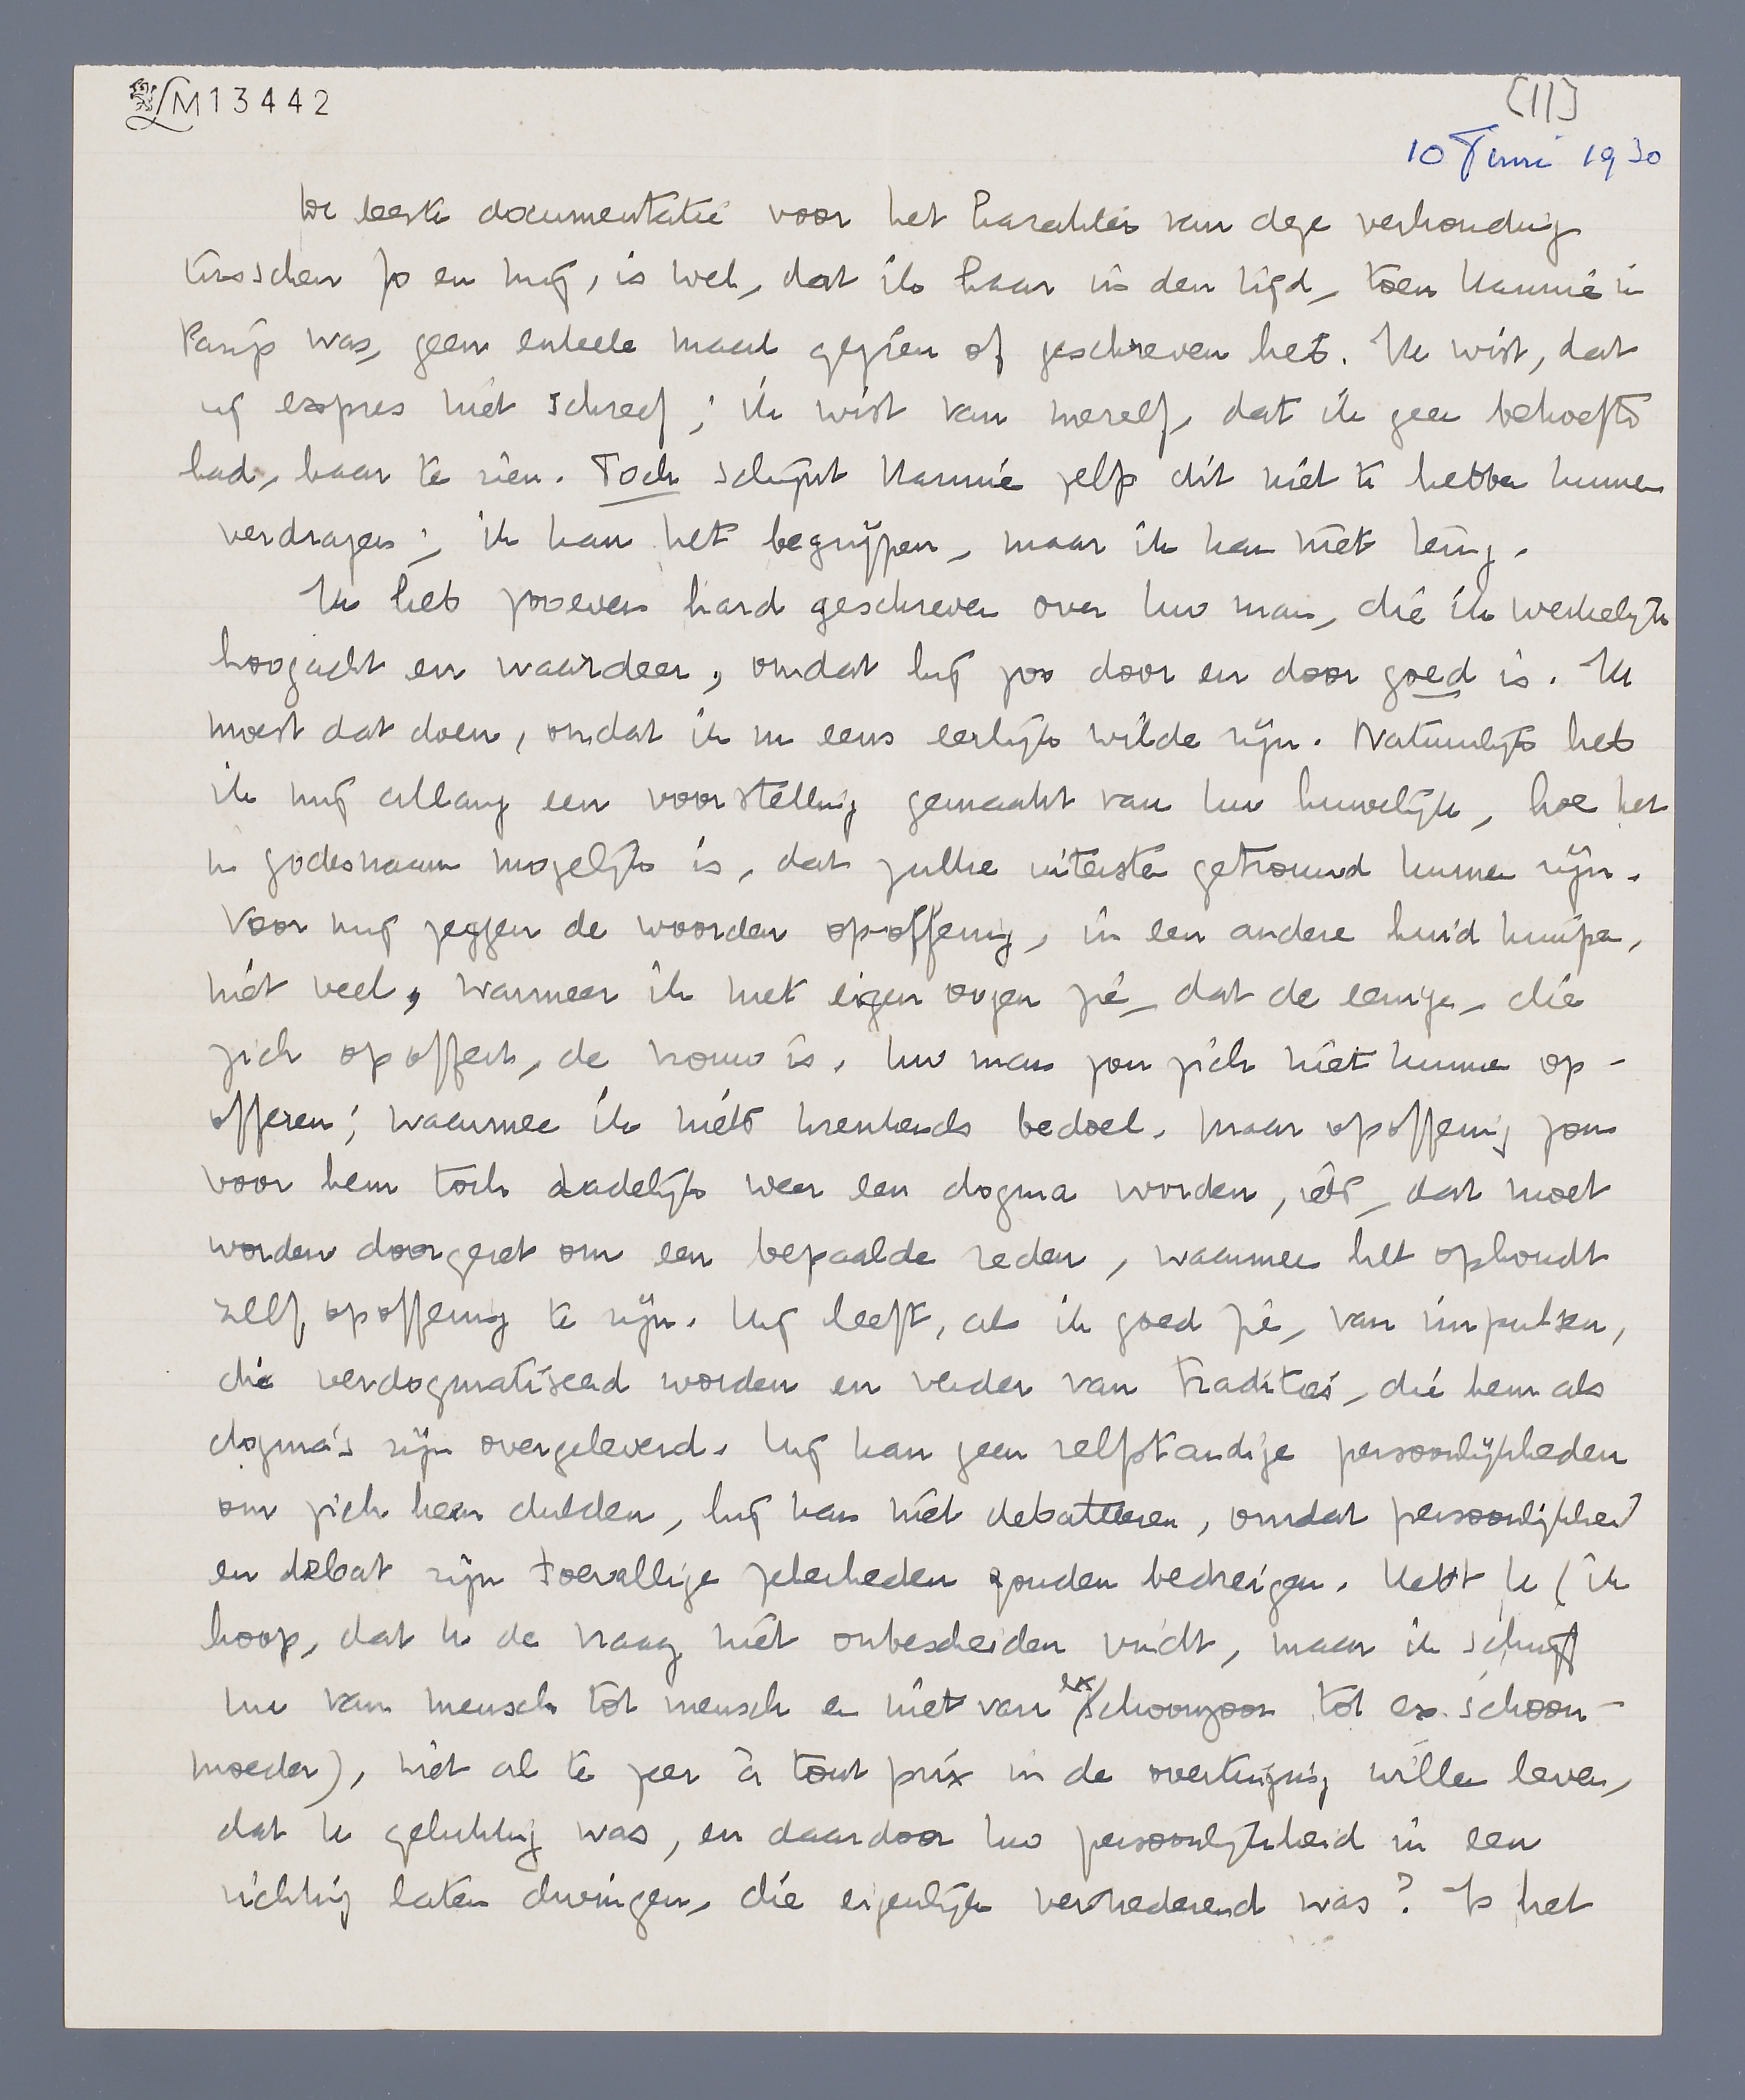 LM13442
[II]
10 Juni 1930
De beste documentatie voor het karakter van deze verhouding
tusschen Jo en mij, is wel, dat ik haar in den tijd, toen Hannie in
Parijs was, geen enkele maal gezien of geschreven heb. Ik wist, dat
zij expres niet schreef; ik wist van mezelf, dat ik geen behoefte
had, haar te zien. Toch schijnt Hannie zelfs dit niet te hebben kunnen
verdragen; ik kan het begrijpen, maar ik kan niet terug.
Ik heb zooeven hard geschreven over Uw man, die ik werkelijk
hoogacht en waardeer, omdat hij zoo door en door goed is. Ik
moest dat doen, omdat ik nu eens eerlijk wilde zijn. Natuurlijk heb
ik mij allang een voorstelling gemaakt van Uw huwelijk, hoe het
in godesnaam mogelijk is, dat zulke uitersten getrouwd kunnen zijn.
Voor mij zeggen de woorden opoffering, in een andere huid kruipen,
niet veel, wanneer ik met eigen oogen zie, dat de eenige, die
zich opoffert, de vrouw is. Uw man zou zich niet kunnen op-
offeren; waarmee ik niets krenkends bedoel. Maar opoffering zou
voor hem toch dadelijk weer een dogma worden, iets, dat moet
worden doorgezet om een bepaalde reden, waarmee het ophoudt
zelf opoffering te zijn. Hij leeft, als ik goed zie, van impulsen,
die verdogmatiseerd worden en verder van tradities, die hem als
dogma's zijn overgeleverd. Hij kan geen zelfstandige persoonlijkheden
om zich heen dulden, hij kan niet debatteeren, omdat persoonlijkheid
en debat zijn toevallige zekerheden zouden bedreigen. Hebt U (ik
hoop, dat U de vraag niet onbescheiden vindt, maar ik schrijf
nu van mensch tot mensch en niet van ex schoonzoon tot ex-schoon-
moeder), niet al te zeer à tout prix in de overtuiging willen leven,
dat U gelukkig was, en daardoor Uw persoonlijkheid in een
richting laten dwingen, die eigenlijk vernederend was? Is het